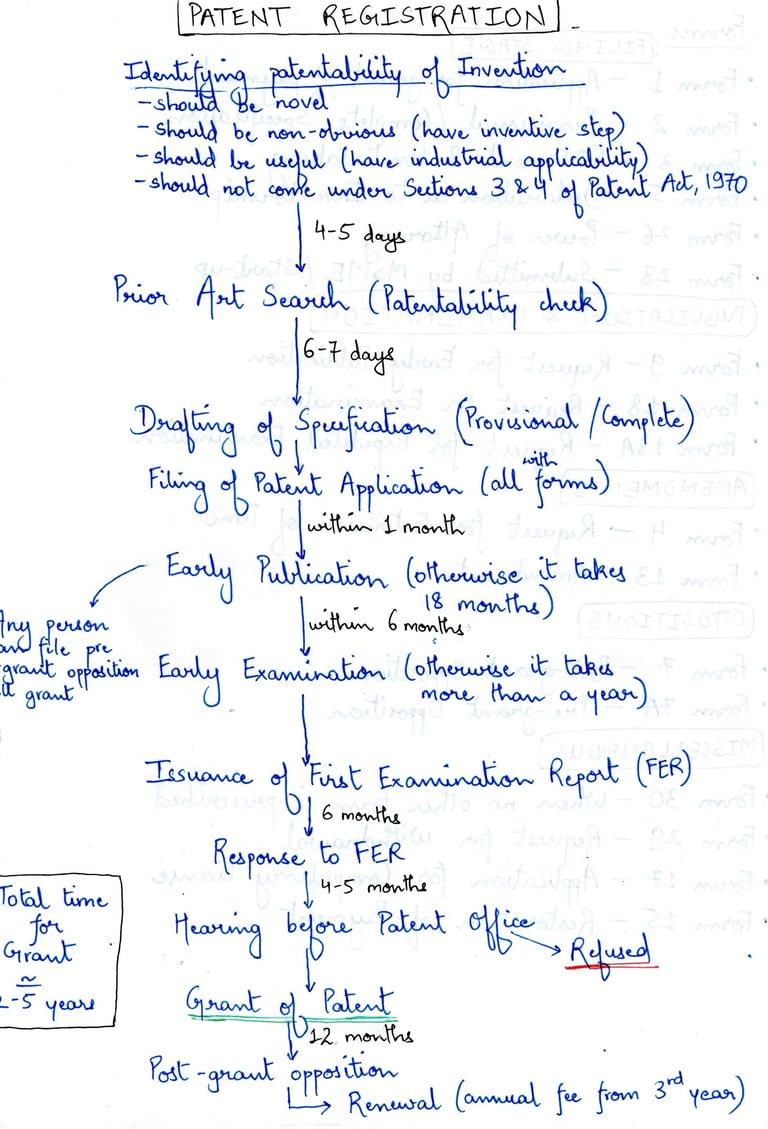 PATENT REGISTRATION
Identifying patentability of Invention
- should be novel
- should be non-obvious (have inventive step)
- should be useful (have industrial applicability)
- should not come under Sections 3 & 4 of Patent Act, 1970
4-5 days
Prior Art Search (Patentability check)
6-7 days
Drafting of Specification (Provisional / Complete)
Filing of Patent Application (all with forms)
within 1 month
Early Publication (otherwise it takes
18 months)
Any person
file pre
grant opposition
grant
within 6 months
Early Examination (otherwise it takes
more than a year)
Issuance of First Examination Report (FER)
6 months
Response to FER
4-5 months
Hearing before Patent Office
Refused
Total time
for
Grant
≃
-5 years
Grant of Patent
12 months
Post-grant opposition
Renewal (annual fee from 3rd year)